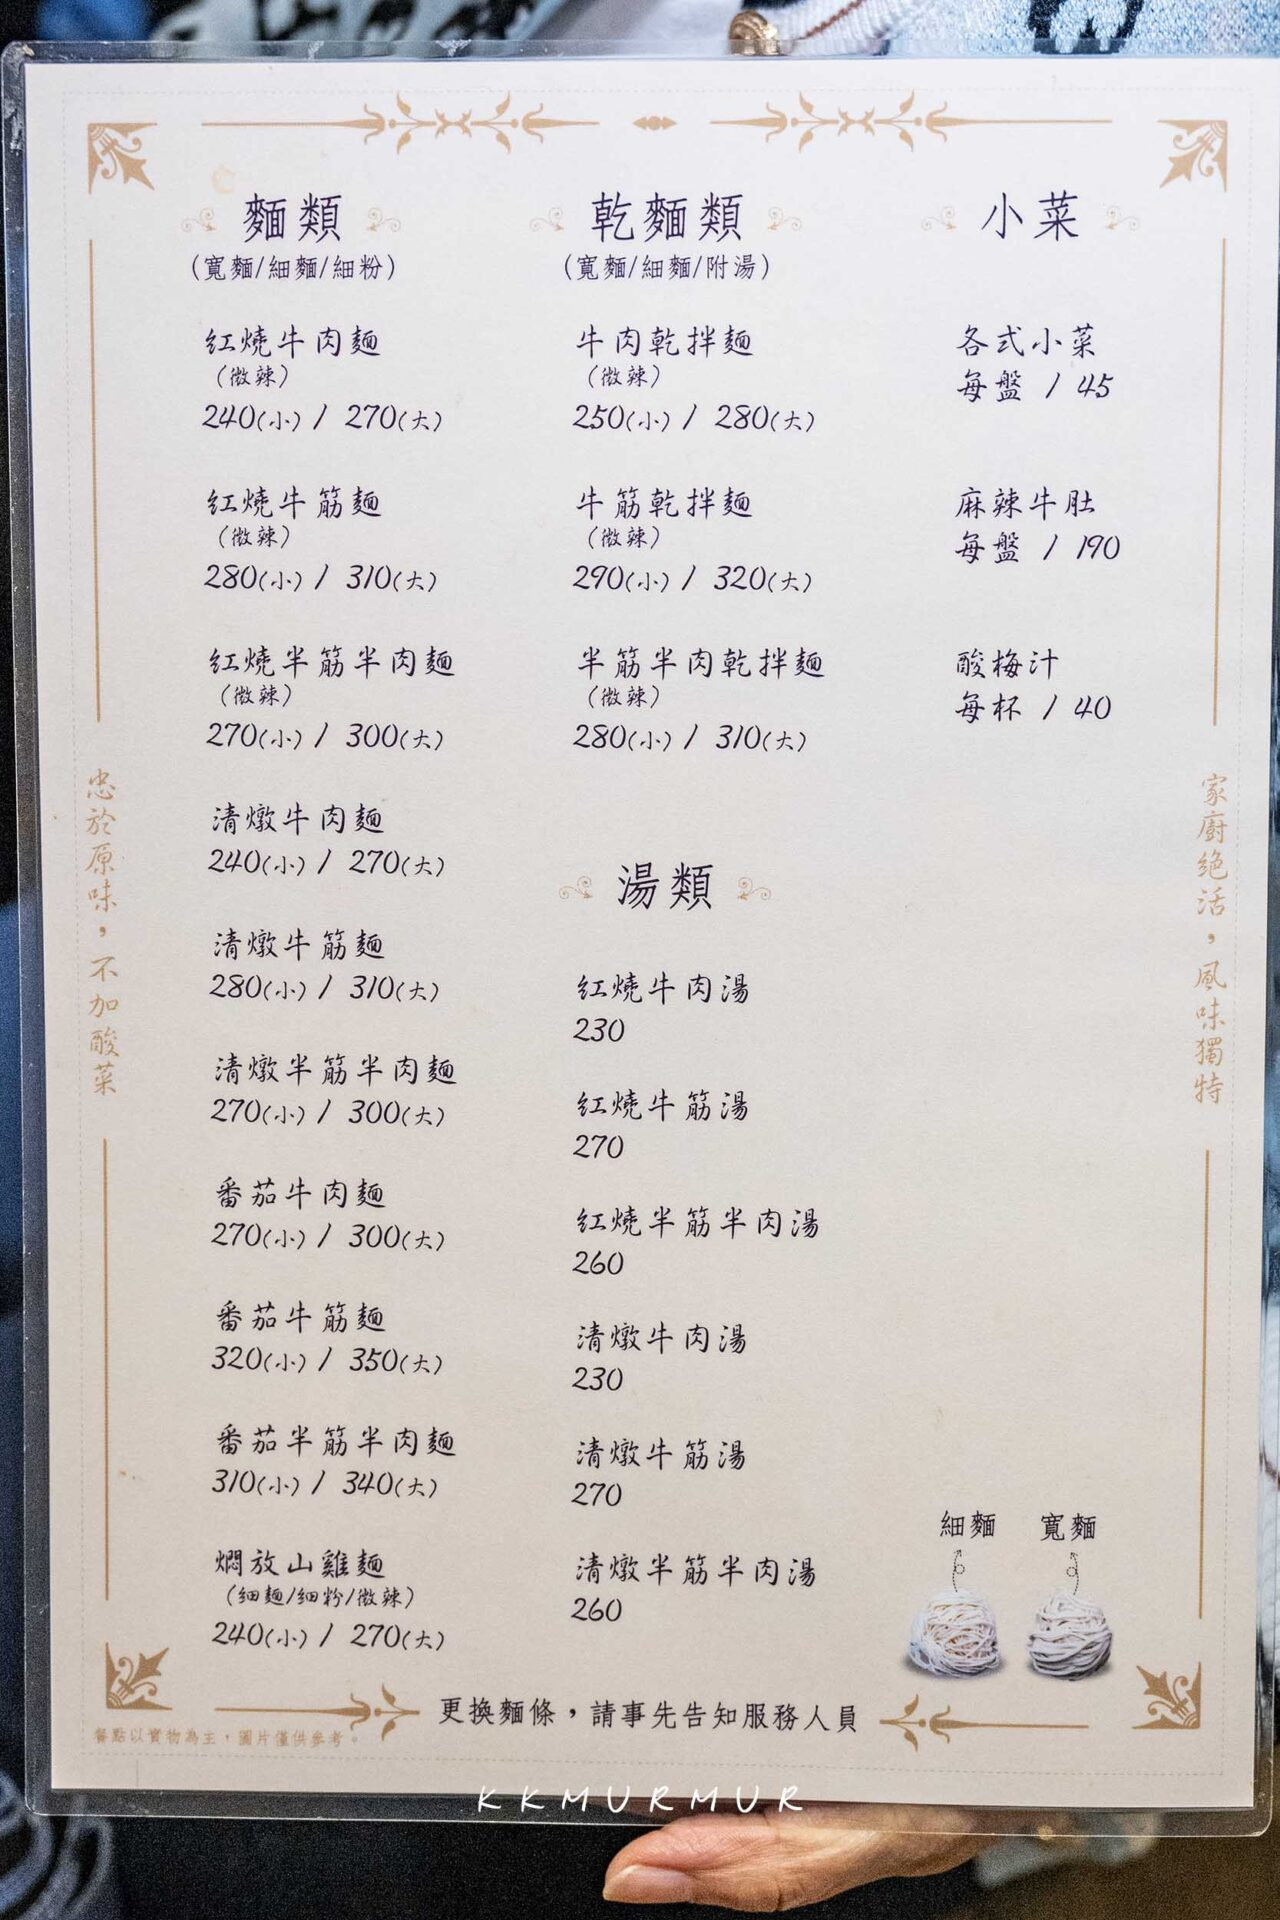 麵類
(寬麵/細麵/細粉)
紅燒牛肉麵
(微辣)
240(小) / 270(大)
紅燒牛筋麵
(微辣)
280(小) / 310(大)
紅燒半筋半肉麵
(微辣)
270(小) / 300(大)
清燉牛肉麵
240(小) / 270(大)
清燉牛筋麵
280(小) / 310(大)
清燉半筋半肉麵
270(小) / 300(大)
番茄牛肉麵
270(小) / 300(大)
番茄牛筋麵
320(小) / 350(大)
番茄半筋半肉麵
310(小) / 340(大)
燜放山雞麵
(細麵/細粉/微辣)
240(小) / 270(大)
乾麵類
(寬麵/細麵/附湯)
牛肉乾拌麵
(微辣)
250(小) / 280(大)
牛筋乾拌麵
(微辣)
290(小) / 320(大)
半筋半肉乾拌麵
(微辣)
280(小) / 310(大)
湯類
紅燒牛肉湯
230
紅燒牛筋湯
270
紅燒半筋半肉湯
260
清燉牛肉湯
230
清燉牛筋湯
270
清燉半筋半肉湯
260
小菜
各式小菜
每盤 / 45
麻辣牛肚
每盤 / 190
酸梅汁
每杯 / 40
忠於原味，不加酸菜
家廚絕活，風味獨特
細麵
寬麵
更換麵條，請事先告知服務人員
餐點以實物為主，圖片僅供參考。
KKMURMUR